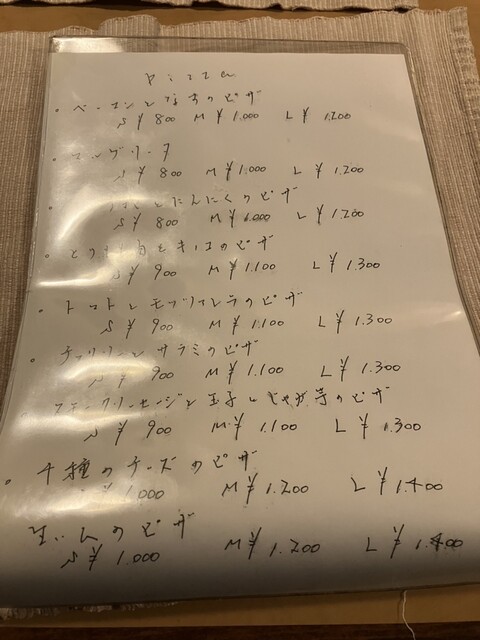 Pizza
・ベーコンとなすのピザ
S ¥ 800 M ¥ 1.000 L ¥ 1.200
マルゲリータ
S ¥ 800 M ¥ 1.000 L ¥ 1.200
とにんにくのピザ
S ¥ 800 M ¥ 1.000 L ¥ 1.200
・とりもも肉とキノコのピザ
S ¥ 900 M ¥ 1.100 L ¥ 1.300
・トマトとモッツァレラのピザ
S ¥ 900 M ¥ 1.100 L ¥ 1.300
・ サラミのピザ
S ¥ 900 M ¥ 1.100 L ¥ 1.300
と玉子とじゃが芋のピザ
S ¥ 900 M ¥ 1.100 L ¥ 1.300
・ 種のチーズのピザ
¥ 1.000 M ¥ 1.200 L ¥ 1.400
生ハムのピザ
S ¥ 1.000 M ¥ 1.200 L ¥ 1.400